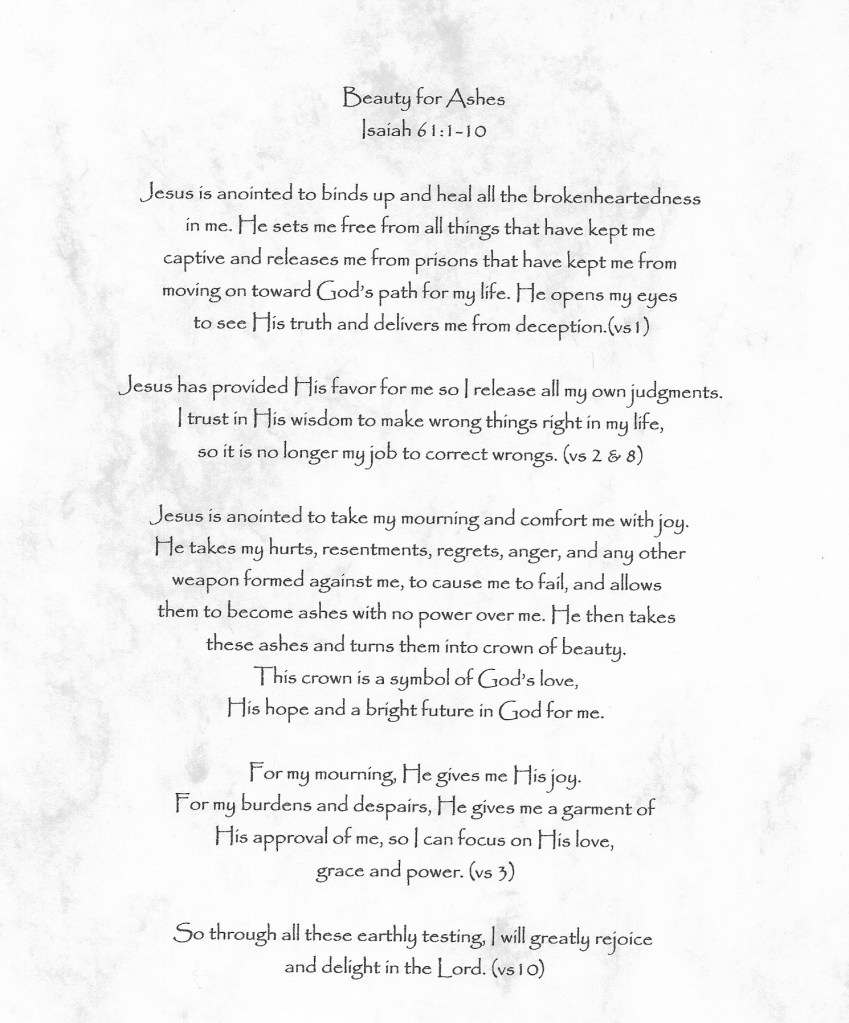 Beauty for Ashes
Isaiah 61:1-10
Jesus is anointed to binds up and heal all the brokenheartedness
in me. He sets me free from all things that have kept me
captive and releases me from prisons that have kept me from
moving on toward God's path for my life. He opens my eyes
to see His truth and delivers me from deception.(vs1)
Jesus has provided His favor for me so I release all my own judgments.
I trust in His wisdom to make wrong things right in my life,
so it is no longer my job to correct wrongs. (vs 2 & 8)
Jesus is anointed to take my mourning and comfort me with joy.
He takes my hurts, resentments, regrets, anger, and any other
weapon formed against me, to cause me to fail, and allows
them to become ashes with no power over me. He then takes
these ashes and turns them into crown of beauty.
This crown is a symbol of God's love,
His hope and a bright future in God for me.
For my mourning, He gives me His joy.
For my burdens and despairs, He gives me a garment of
His approval of me, so I can focus on His love,
grace and power. (vs 3)
So through all these earthly testing, I will greatly rejoice
and delight in the Lord. (vs10)